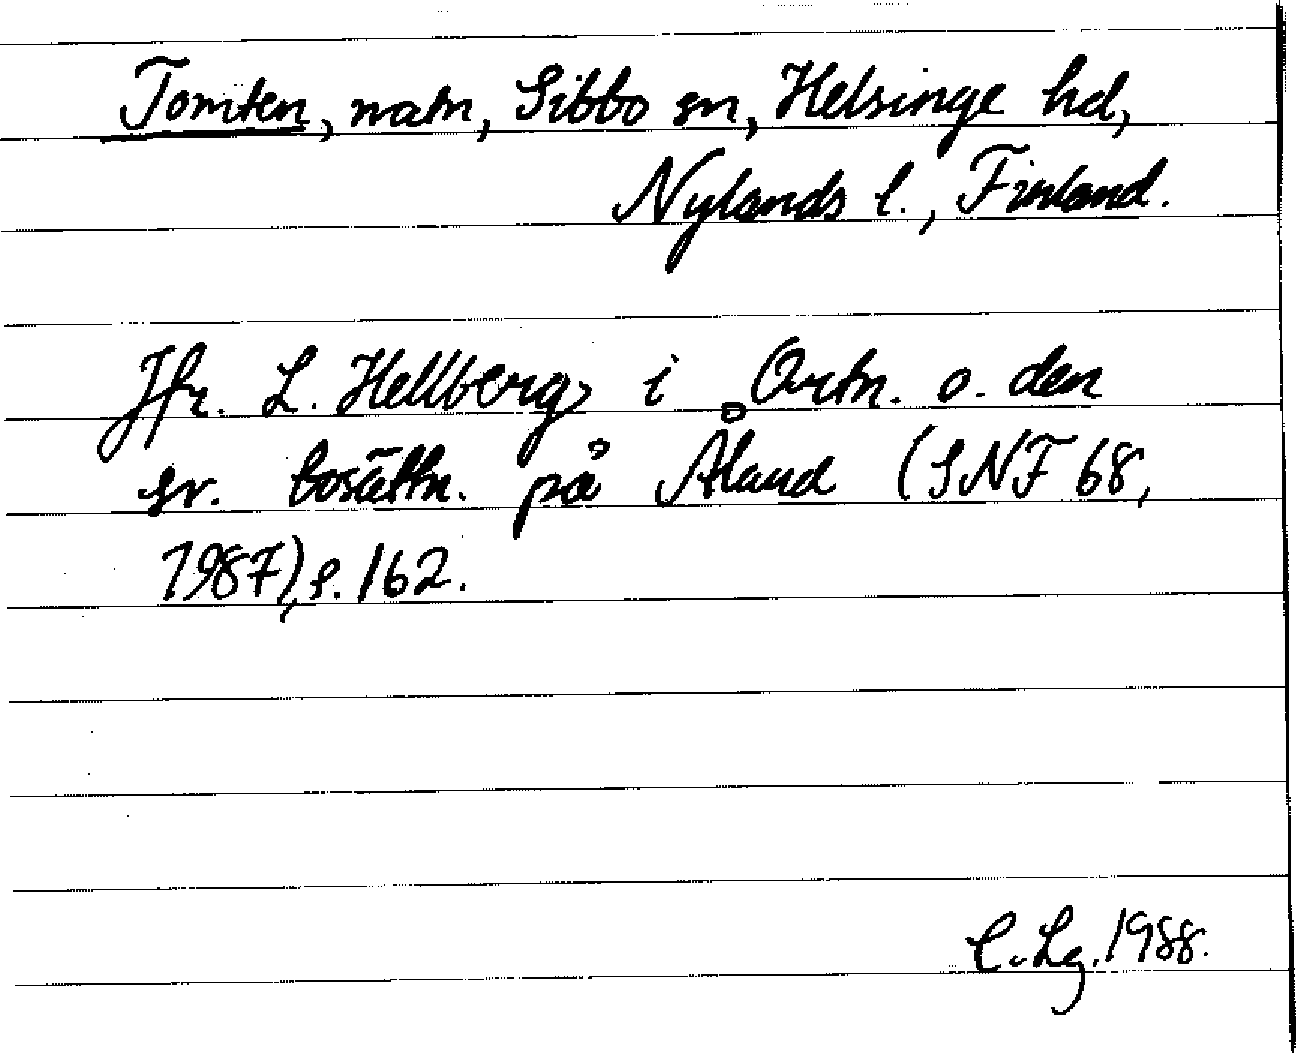 Tomten, natn, Sibbo sn, Helsinge hd,
Nylands l., Finland.
Jfr. L. Hellberg i Ortn. o. den
sv. bosättn. på Åland (SNF 68,
1987), s. 162.
C. Lg. 1988.